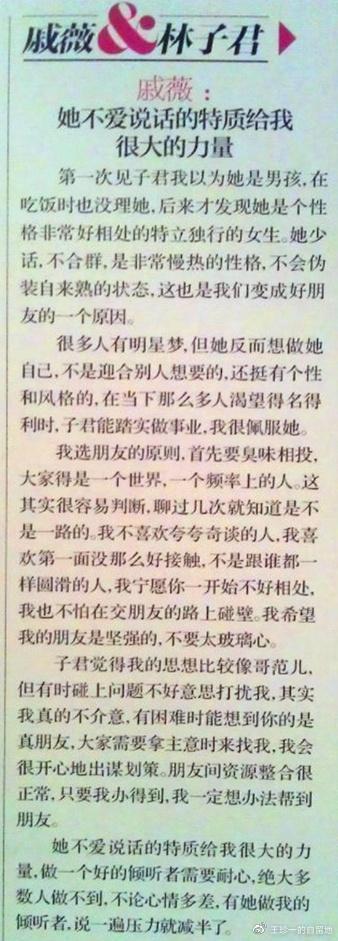 戚薇&林子君
戚薇：
她不爱说话的特质给我
很大的力量
第一次见子君我以为她是男孩，在
吃饭时也没理她，后来才发现她是个性
格非常好相处的特立独行的女生。她少
话，不合群，是非常慢热的性格，不会伪
装自来熟的状态，这也是我们变成好朋
友的一个原因。
很多人有明星梦，但她反而想做她
自己，不是迎合别人想要的，还挺有个性
和风格的，在当下那么多人渴望得名得
利时，子君能踏实做事业，我很佩服她。
我选朋友的原则，首先要臭味相投，
大家得是一个世界，一个频率上的人。这
其实很容易判断，聊过几次就知道是不
是一路的。我不喜欢夸夸奇谈的人，我喜
欢第一面没那么好接触，不是跟谁都一
样圆滑的人，我宁愿你一开始不好相处，
我也不怕在交朋友的路上碰壁。我希望
我的朋友是坚强的，不要太玻璃心。
子君觉得我的思想比较像哥范儿，
但有时碰上问题不好意思打扰我，其实
我真的不介意，有困难时能想到你的是
真朋友，大家需要拿主意时来找我，我会
很开心地出谋划策。朋友间资源整合很
正常，只要我办得到，我一定想办法帮到
朋友。
她不爱说话的特质给我很大的力
量，做一个好的倾听者需要耐心，绝大多
数人做不到，不论心情多差，有她做我的
倾听者，说一遍压力就减半了。
@王珍一的自留地